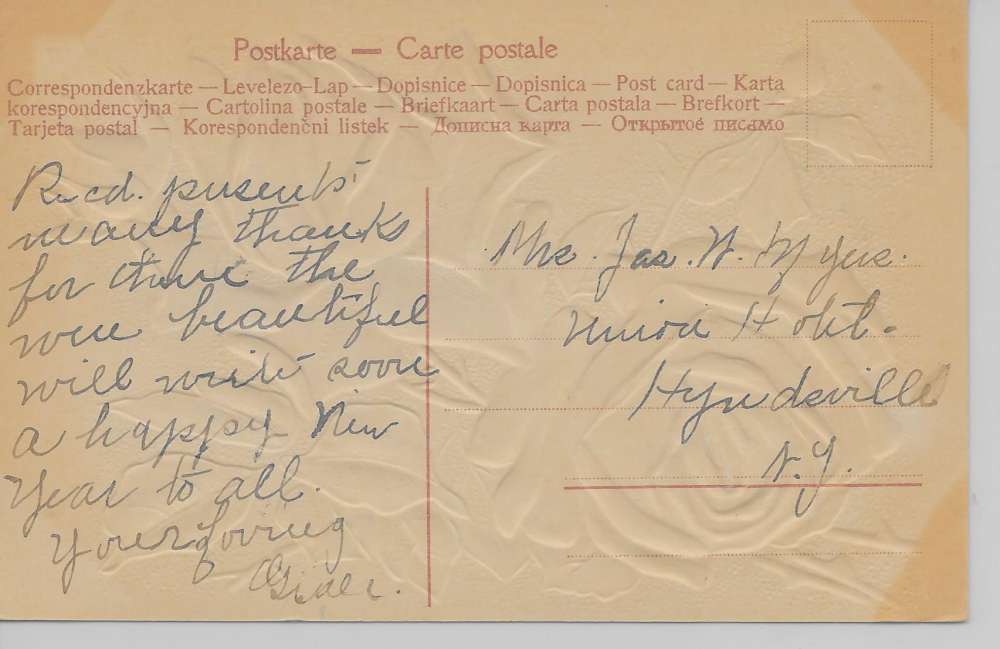 Postkarte — Carte postale
Correspondenzkarte — Levelezo-Lap — Dopisnice — Dopisnica — Post card — Karta
korespondencyjna — Cartolina postale — Briefkaart — Carta postala — Brefkort —
Tarjeta postal — Korespondenčni listek — Дописна карта — Открытое писамо
Recd. presents
many thanks
for them the
were beautiful
will write soon
a happy New
Year to all.
Your loving
Mrs. Jas. W. Myers.
Union Hotel.
Hyndsville
N.Y.